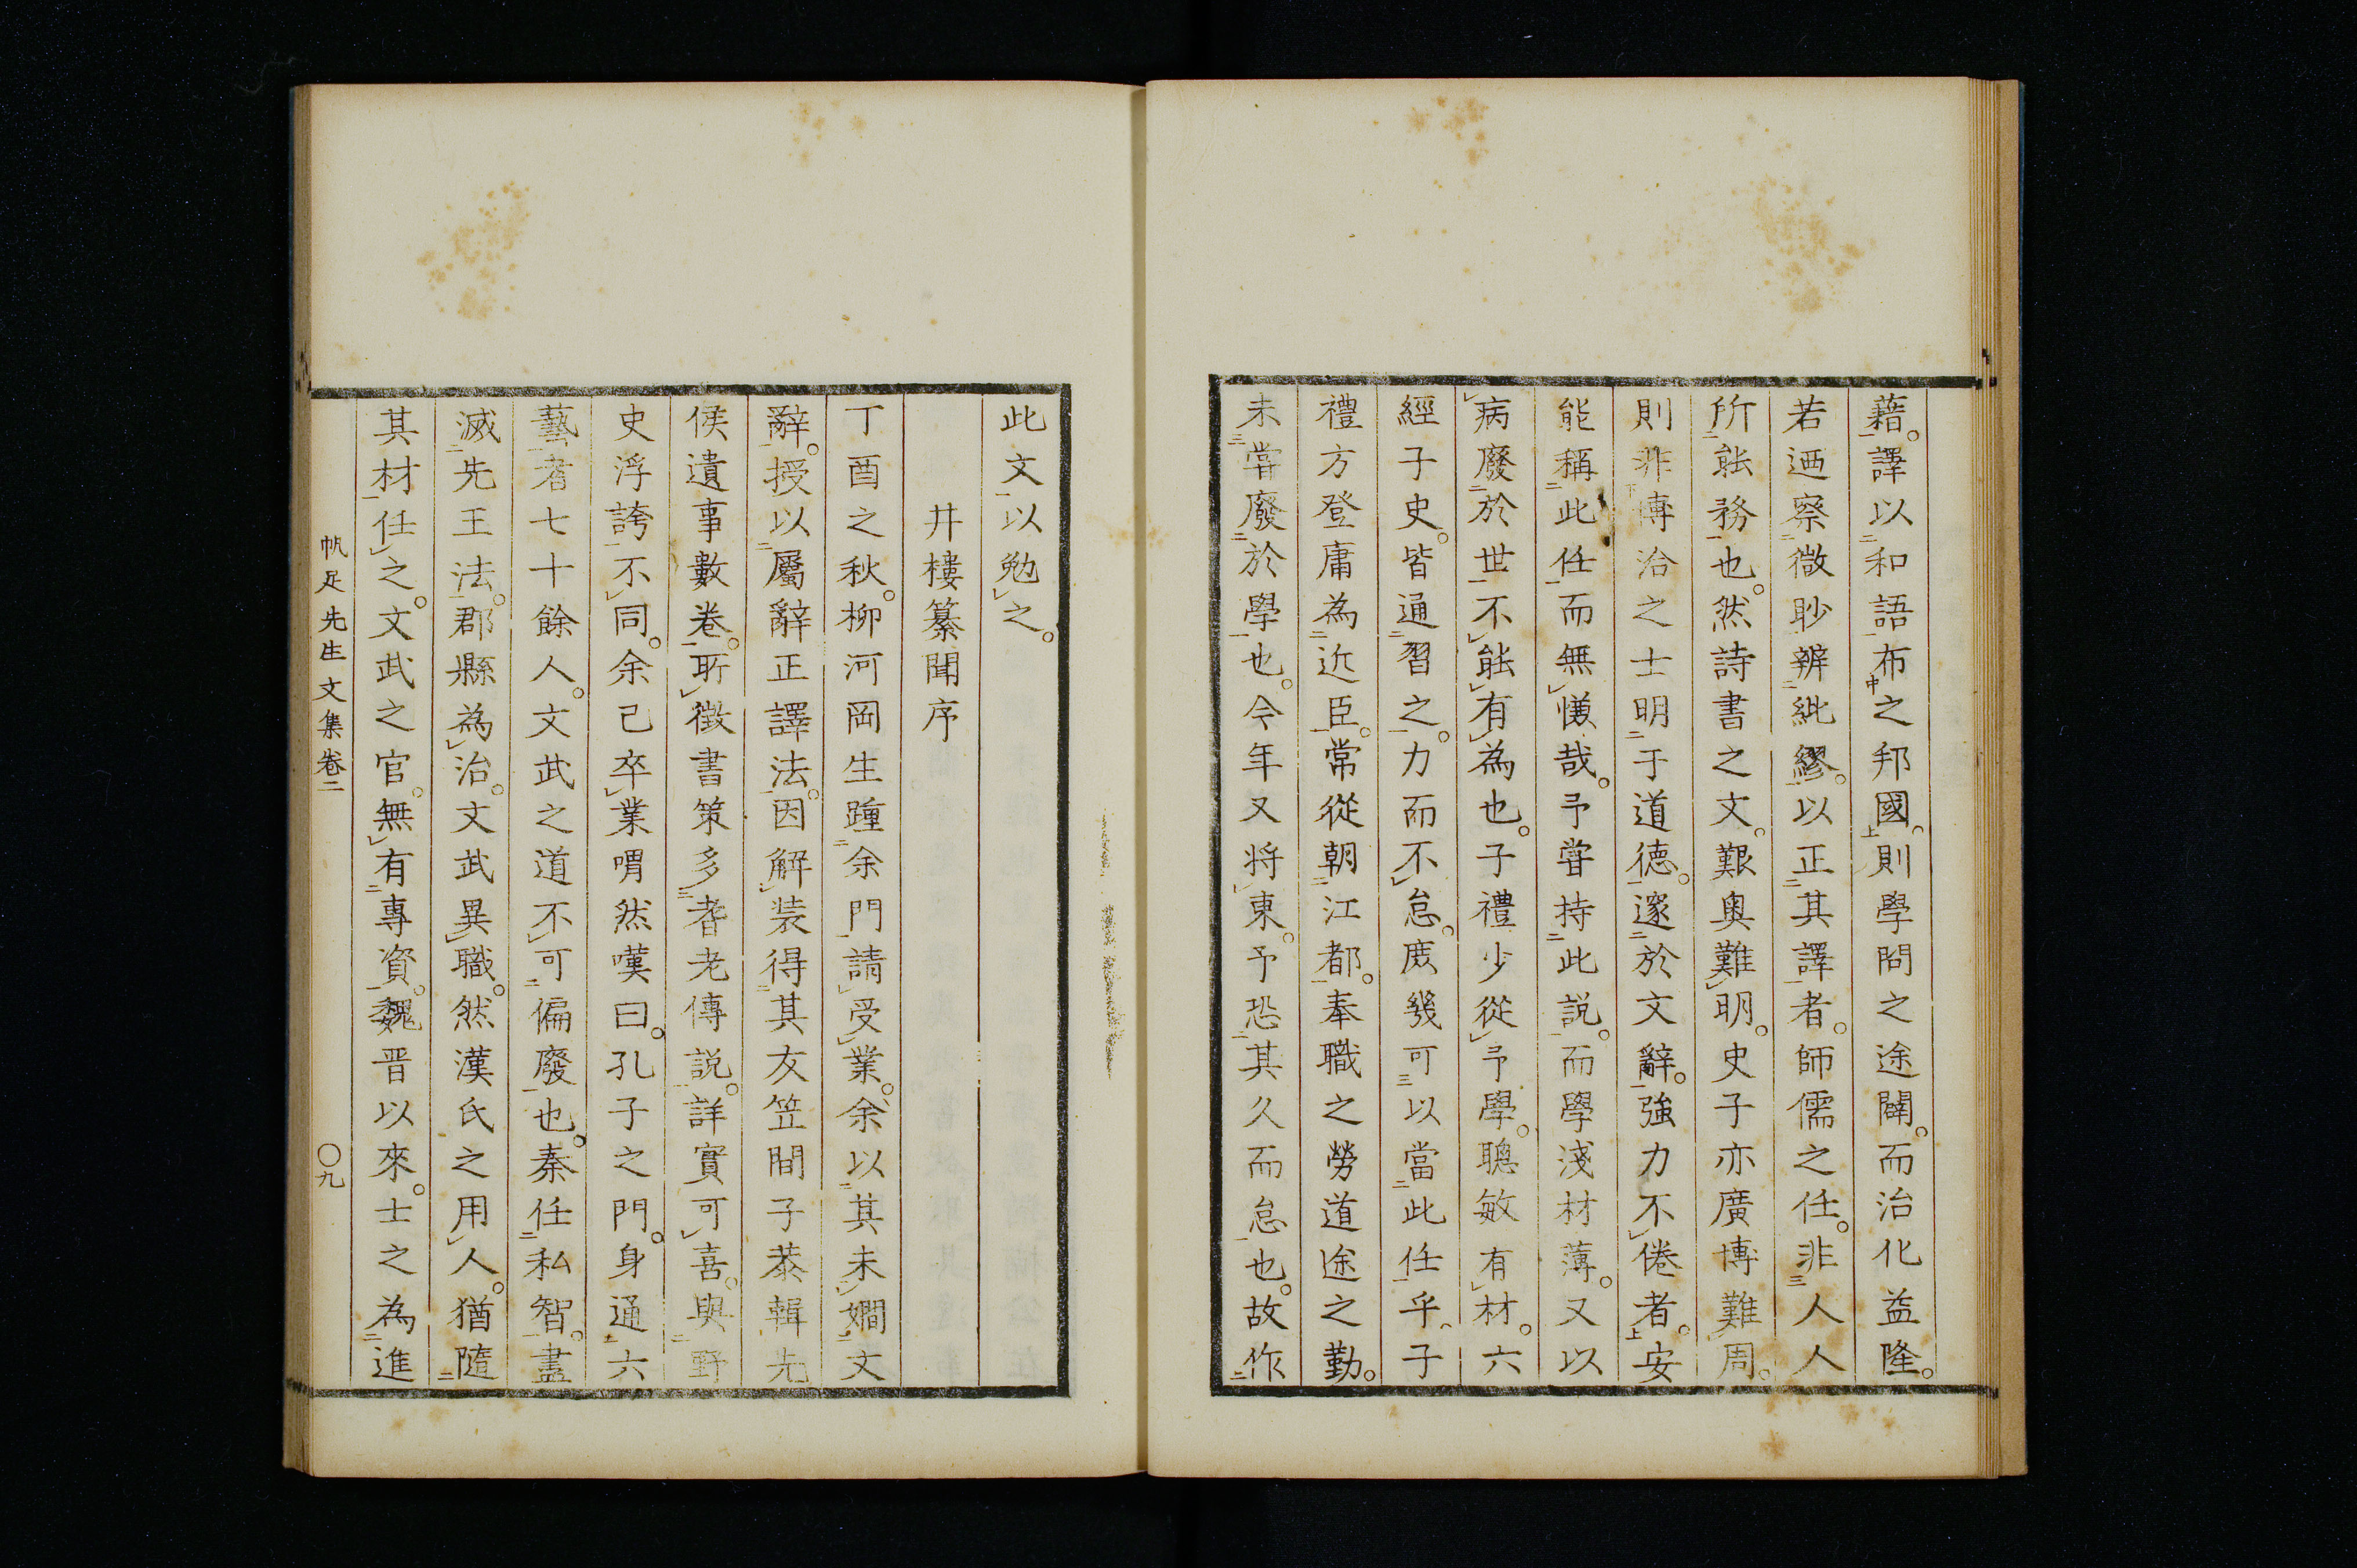 藉。譯以和語布之邦國。則學問之途闢。而治化益隆。
若迺察微眇辨紕繆。以正其譯者。師儒之任。非人人
所能務也。然詩書之文。艱奥難明。史子亦廣博難周。
則非博洽之士明于道德。邃於文辭。強力不倦者。安
能稱此任而無愧哉。予嘗持此説。而學淺材薄。又以
病廢於世不能有為也。子禮少從予學。聰敏有材。六
經子史。皆通習之。力而不怠。庶幾可以當此任乎。子
禮方登庸為近臣。常從朝江都。奉職之勞道途之勤。
未嘗廢於學也。今年又將東。予恐其久而怠也。故作
此文以勉之。
井樓纂聞序
丁酉之秋。柳河岡生踵余門請受業。余以其未嫺文
辭。授以屬辭正譯法。因解装得其友笠間子恭輯先
侯遺事數卷。所徴書策多耆老傳説。詳實可喜。與野
史浮誇不同。余已卒業喟然嘆曰。孔子之門。身通六
藝者七十餘人。文武之道不可偏廢也。秦任私智。盡
滅先王法。郡縣為治。文武異職。然漢氏之用人。猶隨
其材任之。文武之官。無有專資。魏晋以來。士之為進
帆足先生文集卷二
〇九